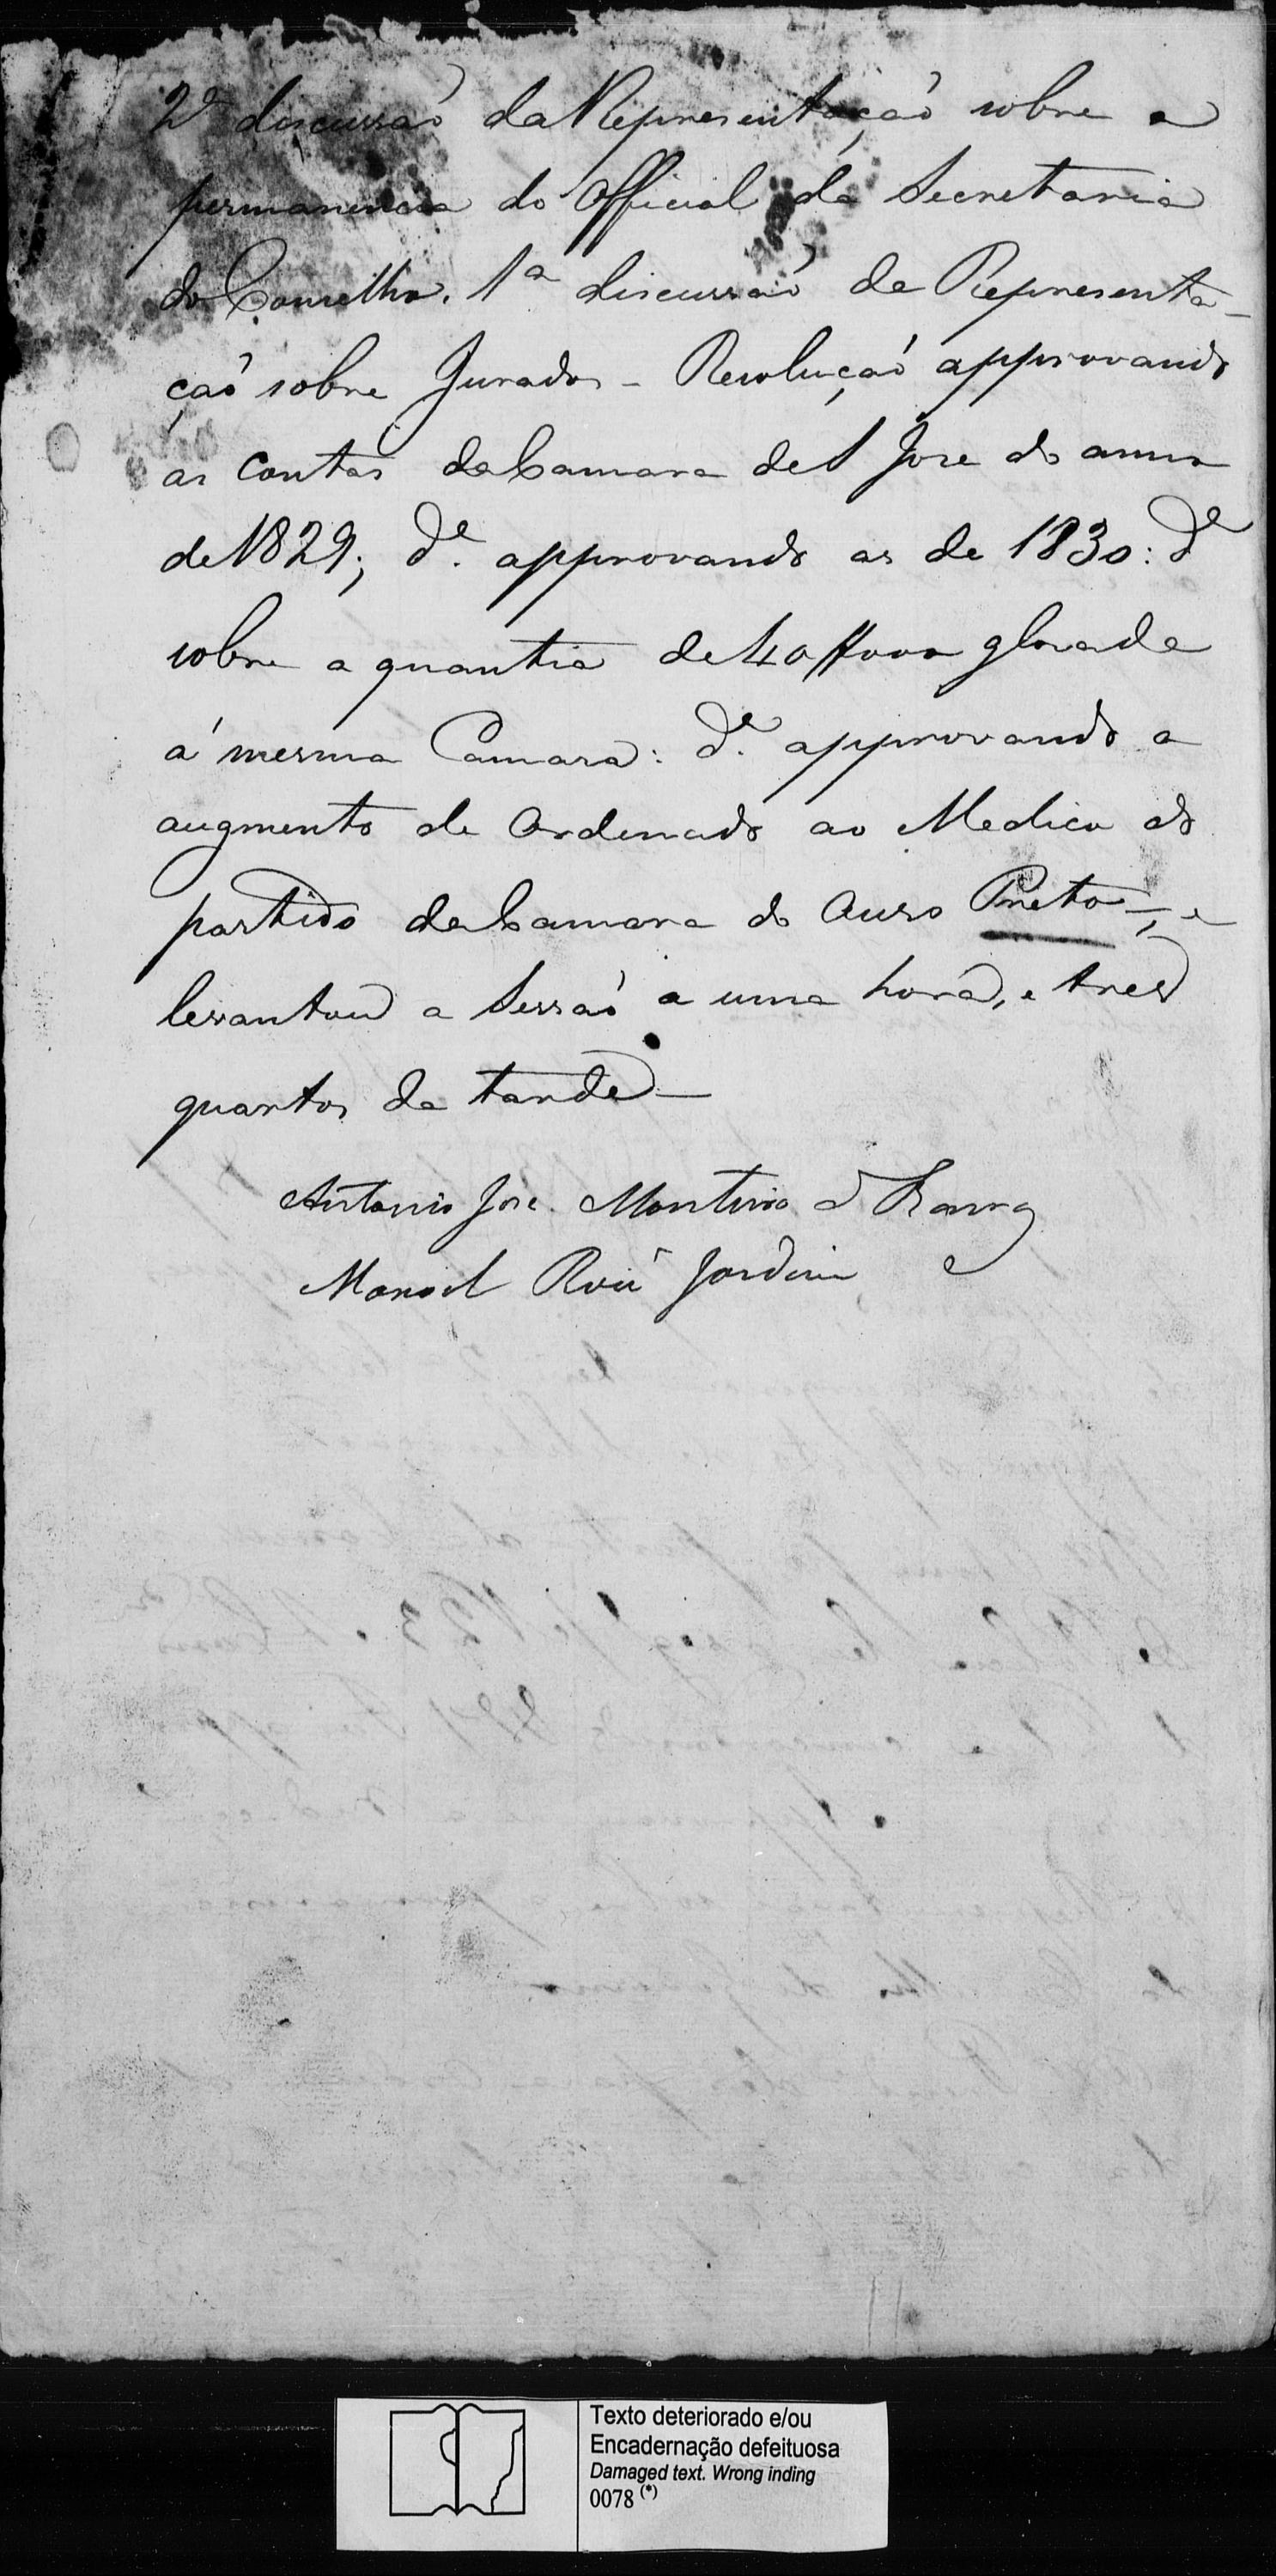 2ª discussaõ da Representaçaõ sobre a
permanencia do Official da Secretaria
do Conselho. 1ª discussaõ da Representa-
çaõ sobre Jurados - Resoluçaõ approvando
as Contas da Camara de S José do anno
de 1829; dª. approvando as de 1830: dª
sobre a quantia de 40//000 glosada
á mesma Camara: dª. approvando o
augmento de Ordenado ao Medico do
partido da Camara do Ouro Preto -, e
levantou a Sessaõ a uma hora, e tres
quartos da tarde -
Antonio José Monteiro de Barros
Manoel Jardim
Texto deteriorado e/ou
Encadernação defeituosa
Damaged text. Wrong inding
0078 (*)